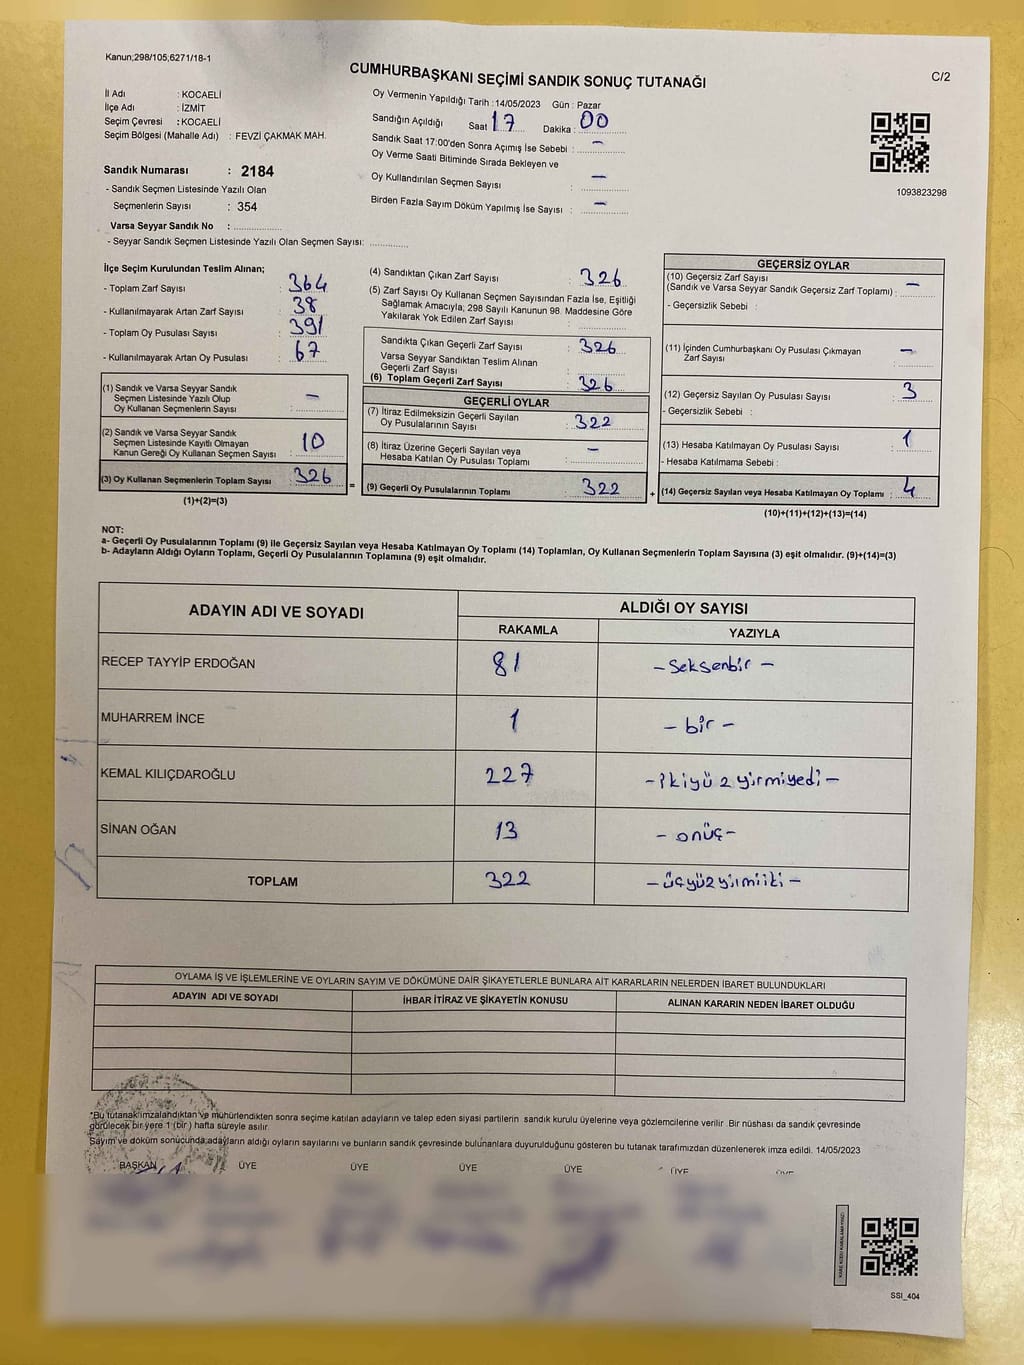 Kanun;298/105;6271/18-1
CUMHURBAŞKANI SEÇİMİ SANDIK SONUÇ TUTANAĞI
C/2
İl Adı : KOCAELİ
İlçe Adı : İZMİT
Seçim Çevresi : KOCAELİ
Seçim Bölgesi (Mahalle Adı) : FEVZİ ÇAKMAK MAH.
Sandık Numarası : 2184
- Sandık Seçmen Listesinde Yazılı Olan
Seçmenlerin Sayısı : 354
Varsa Seyyar Sandık No :
- Seyyar Sandık Seçmen Listesinde Yazılı Olan Seçmen Sayısı:
Oy Vermenin Yapıldığı Tarih :14/05/2023 Gün : Pazar
Sandığın Açıldığı Saat 17 Dakika : 00
Sandık Saat 17:00'den Sonra Açımış İse Sebebi : -
Oy Verme Saati Bitiminde Sırada Bekleyen ve
Oy Kullandırılan Seçmen Sayısı : -
Birden Fazla Sayım Döküm Yapılmış İse Sayısı : -
1093823298
İlçe Seçim Kurulundan Teslim Alınan;
- Toplam Zarf Sayısı : 364
- Kullanılmayarak Artan Zarf Sayısı : 38
- Toplam Oy Pusulası Sayısı : 391
- Kullanılmayarak Artan Oy Pusulası : 67
(1) Sandık ve Varsa Seyyar Sandık
Seçmen Listesinde Yazılı Olup
Oy Kullanan Seçmenlerin Sayısı : -
(2) Sandık ve Varsa Seyyar Sandık
Seçmen Listesinde Kayıtlı Olmayan
Kanun Gereği Oy Kullanan Seçmen Sayısı : 10
(3) Oy Kullanan Seçmenlerin Toplam Sayısı : 326
(1)+(2)=(3)
(4) Sandıktan Çıkan Zarf Sayısı : 326
(5) Zarf Sayısı Oy Kullanan Seçmen Sayısından Fazla İse, Eşitliği
Sağlamak Amacıyla, 298 Sayılı Kanunun 98. Maddesine Göre
Yakılarak Yok Edilen Zarf Sayısı :
Sandıkta Çıkan Geçerli Zarf Sayısı : 326
Varsa Seyyar Sandıktan Teslim Alınan
Geçerli Zarf Sayısı :
(6) Toplam Geçerli Zarf Sayısı : 326
GEÇERLİ OYLAR
(7) İtiraz Edilmeksizin Geçerli Sayılan
Oy Pusulalarının Sayısı : 322
(8) İtiraz Üzerine Geçerli Sayılan veya
Hesaba Katılan Oy Pusulası Toplamı : -
= (9) Geçerli Oy Pusulalarının Toplamı : 322 +
GEÇERSİZ OYLAR
(10) Geçersiz Zarf Sayısı
(Sandık ve Varsa Seyyar Sandık Geçersiz Zarf Toplamı) : -
- Geçersizlik Sebebi :
(11) İçinden Cumhurbaşkanı Oy Pusulası Çıkmayan
Zarf Sayısı : -
(12) Geçersiz Sayılan Oy Pusulası Sayısı : 3
- Geçersizlik Sebebi :
(13) Hesaba Katılmayan Oy Pusulası Sayısı : 1
- Hesaba Katılmama Sebebi :
(14) Geçersiz Sayılan veya Hesaba Katılmayan Oy Toplamı : 4
(10)+(11)+(12)+(13)=(14)
NOT:
a- Geçerli Oy Pusulalarının Toplamı (9) ile Geçersiz Sayılan veya Hesaba Katılmayan Oy Toplamı (14) Toplamları, Oy Kullanan Seçmenlerin Toplam Sayısına (3) eşit olmalıdır. (9)+(14)=(3)
b- Adayların Aldığı Oyların Toplamı, Geçerli Oy Pusulalarının Toplamına (9) eşit olmalıdır.
ADAYIN ADI VE SOYADI
ALDIĞI OY SAYISI
RAKAMLA YAZIYLA
RECEP TAYYİP ERDOĞAN 81 - Seksenbir -
MUHARREM İNCE 1 - bir -
KEMAL KILIÇDAROĞLU 227 - ikiyüz yirmiyedi -
SİNAN OĞAN 13 - onüç -
TOPLAM 322 - üçyüzyirmiiki -
OYLAMA İŞ VE İŞLEMLERİNE VE OYLARIN SAYIM VE DÖKÜMÜNE DAİR ŞİKAYETLERLE BUNLARA AİT KARARLARIN NELERDEN İBARET BULUNDUKLARI
ADAYIN ADI VE SOYADI İHBAR İTİRAZ VE ŞİKAYETİN KONUSU ALINAN KARARIN NEDEN İBARET OLDUĞU
*Bu tutanak imzalandıktan ve mühürlendikten sonra seçime katılan adayların ve talep eden siyasi partilerin sandık kurulu üyelerine veya gözlemcilerine verilir. Bir nüshası da sandık çevresinde
görülecek bir yere 1 (bir) hafta süreyle asılır.
Sayım ve döküm sonucunda adayların aldığı oyların sayılarını ve bunların sandık çevresinde bulunanlara duyurulduğunu gösteren bu tutanak tarafımızdan düzenlenerek imza edildi. 14/05/2023
BAŞKAN ÜYE ÜYE ÜYE ÜYE ÜYE ÜYE
SSI_404